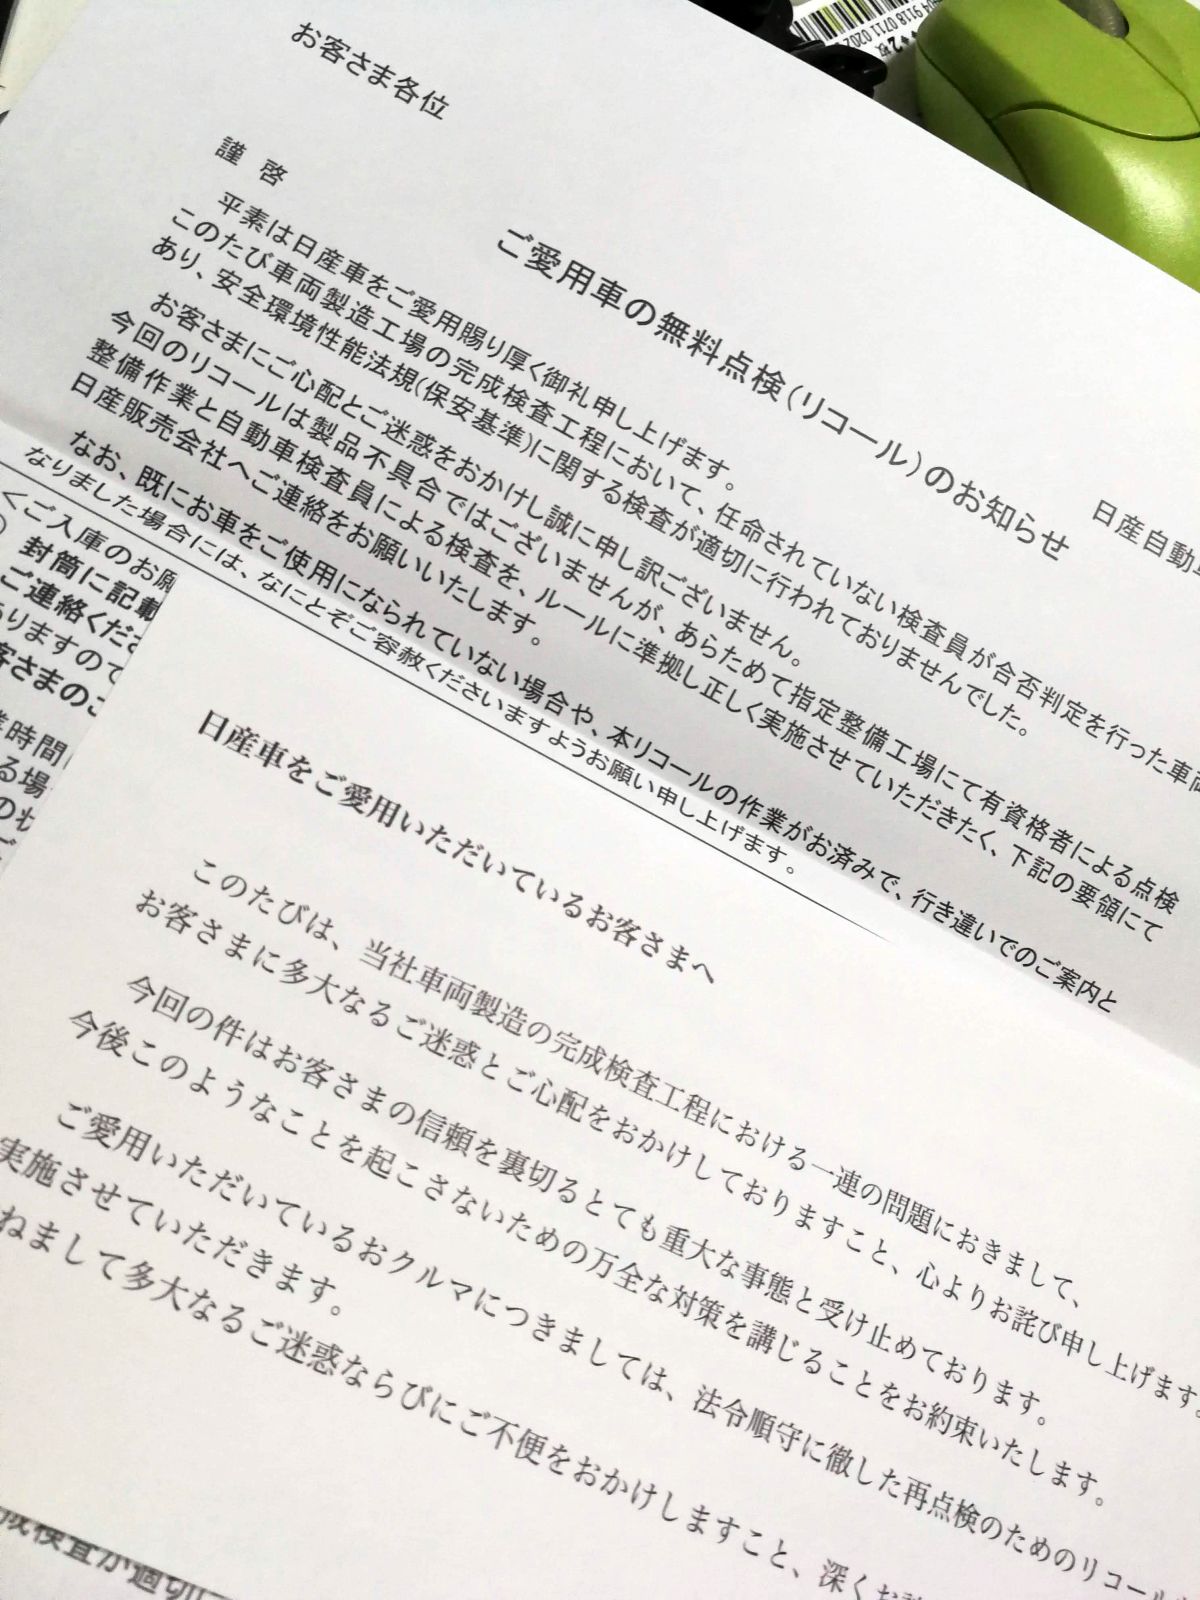 9118 0711 0202
お客さま各位
日産自動
ご愛用車の無料点検(リコール)のお知らせ
謹 啓
平素は日産車をご愛用賜り厚く御礼申し上げます。
このたび車両製造工場の完成検査工程において、任命されていない検査員が合否判定を行った車両
あり、安全環境性能法規(保安基準)に関する検査が適切に行われておりませんでした。
お客さまにご心配とご迷惑をおかけし誠に申し訳ございません。
今回のリコールは製品不具合ではございませんが、あらためて指定整備工場にて有資格者による点検
整備作業と自動車検査員による検査を、ルールに準拠し正しく実施させていただきたく、下記の要領にて
日産販売会社へご連絡をお願いいたします。
なお、既にお車をご使用になられていない場合や、本リコールの作業がお済みで、行き違いでのご案内と
なりました場合には、なにとぞご容赦くださいますようお願い申し上げます。
くご入庫のお願
封筒に記載
ご連絡くださ
ありますので
客さまのご
業時間
る場
日産車をご愛用いただいているお客さまへ
このたびは、当社車両製造の完成検査工程における一連の問題におきまして、
お客さまに多大なるご迷惑とご心配をおかけしておりますこと、心よりお詫び申し上げます。
今回の件はお客さまの信頼を裏切るとても重大な事態と受け止めております。
今後このようなことを起こさないための万全な対策を講じることをお約束いたします。
ご愛用いただいているおクルマにつきましては、法令順守に徹した再点検のためのリコール
実施させていただきます。
ねまして多大なるご迷惑ならびにご不便をおかけしますこと、深くお
成検査が適切